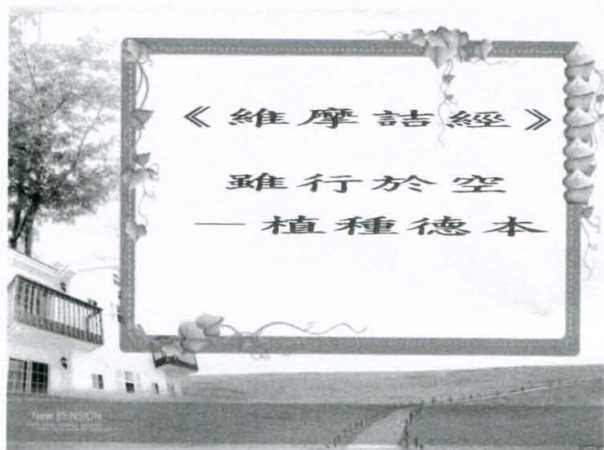 《維摩詰經》
雖行於空
—植種德本
New PENSION